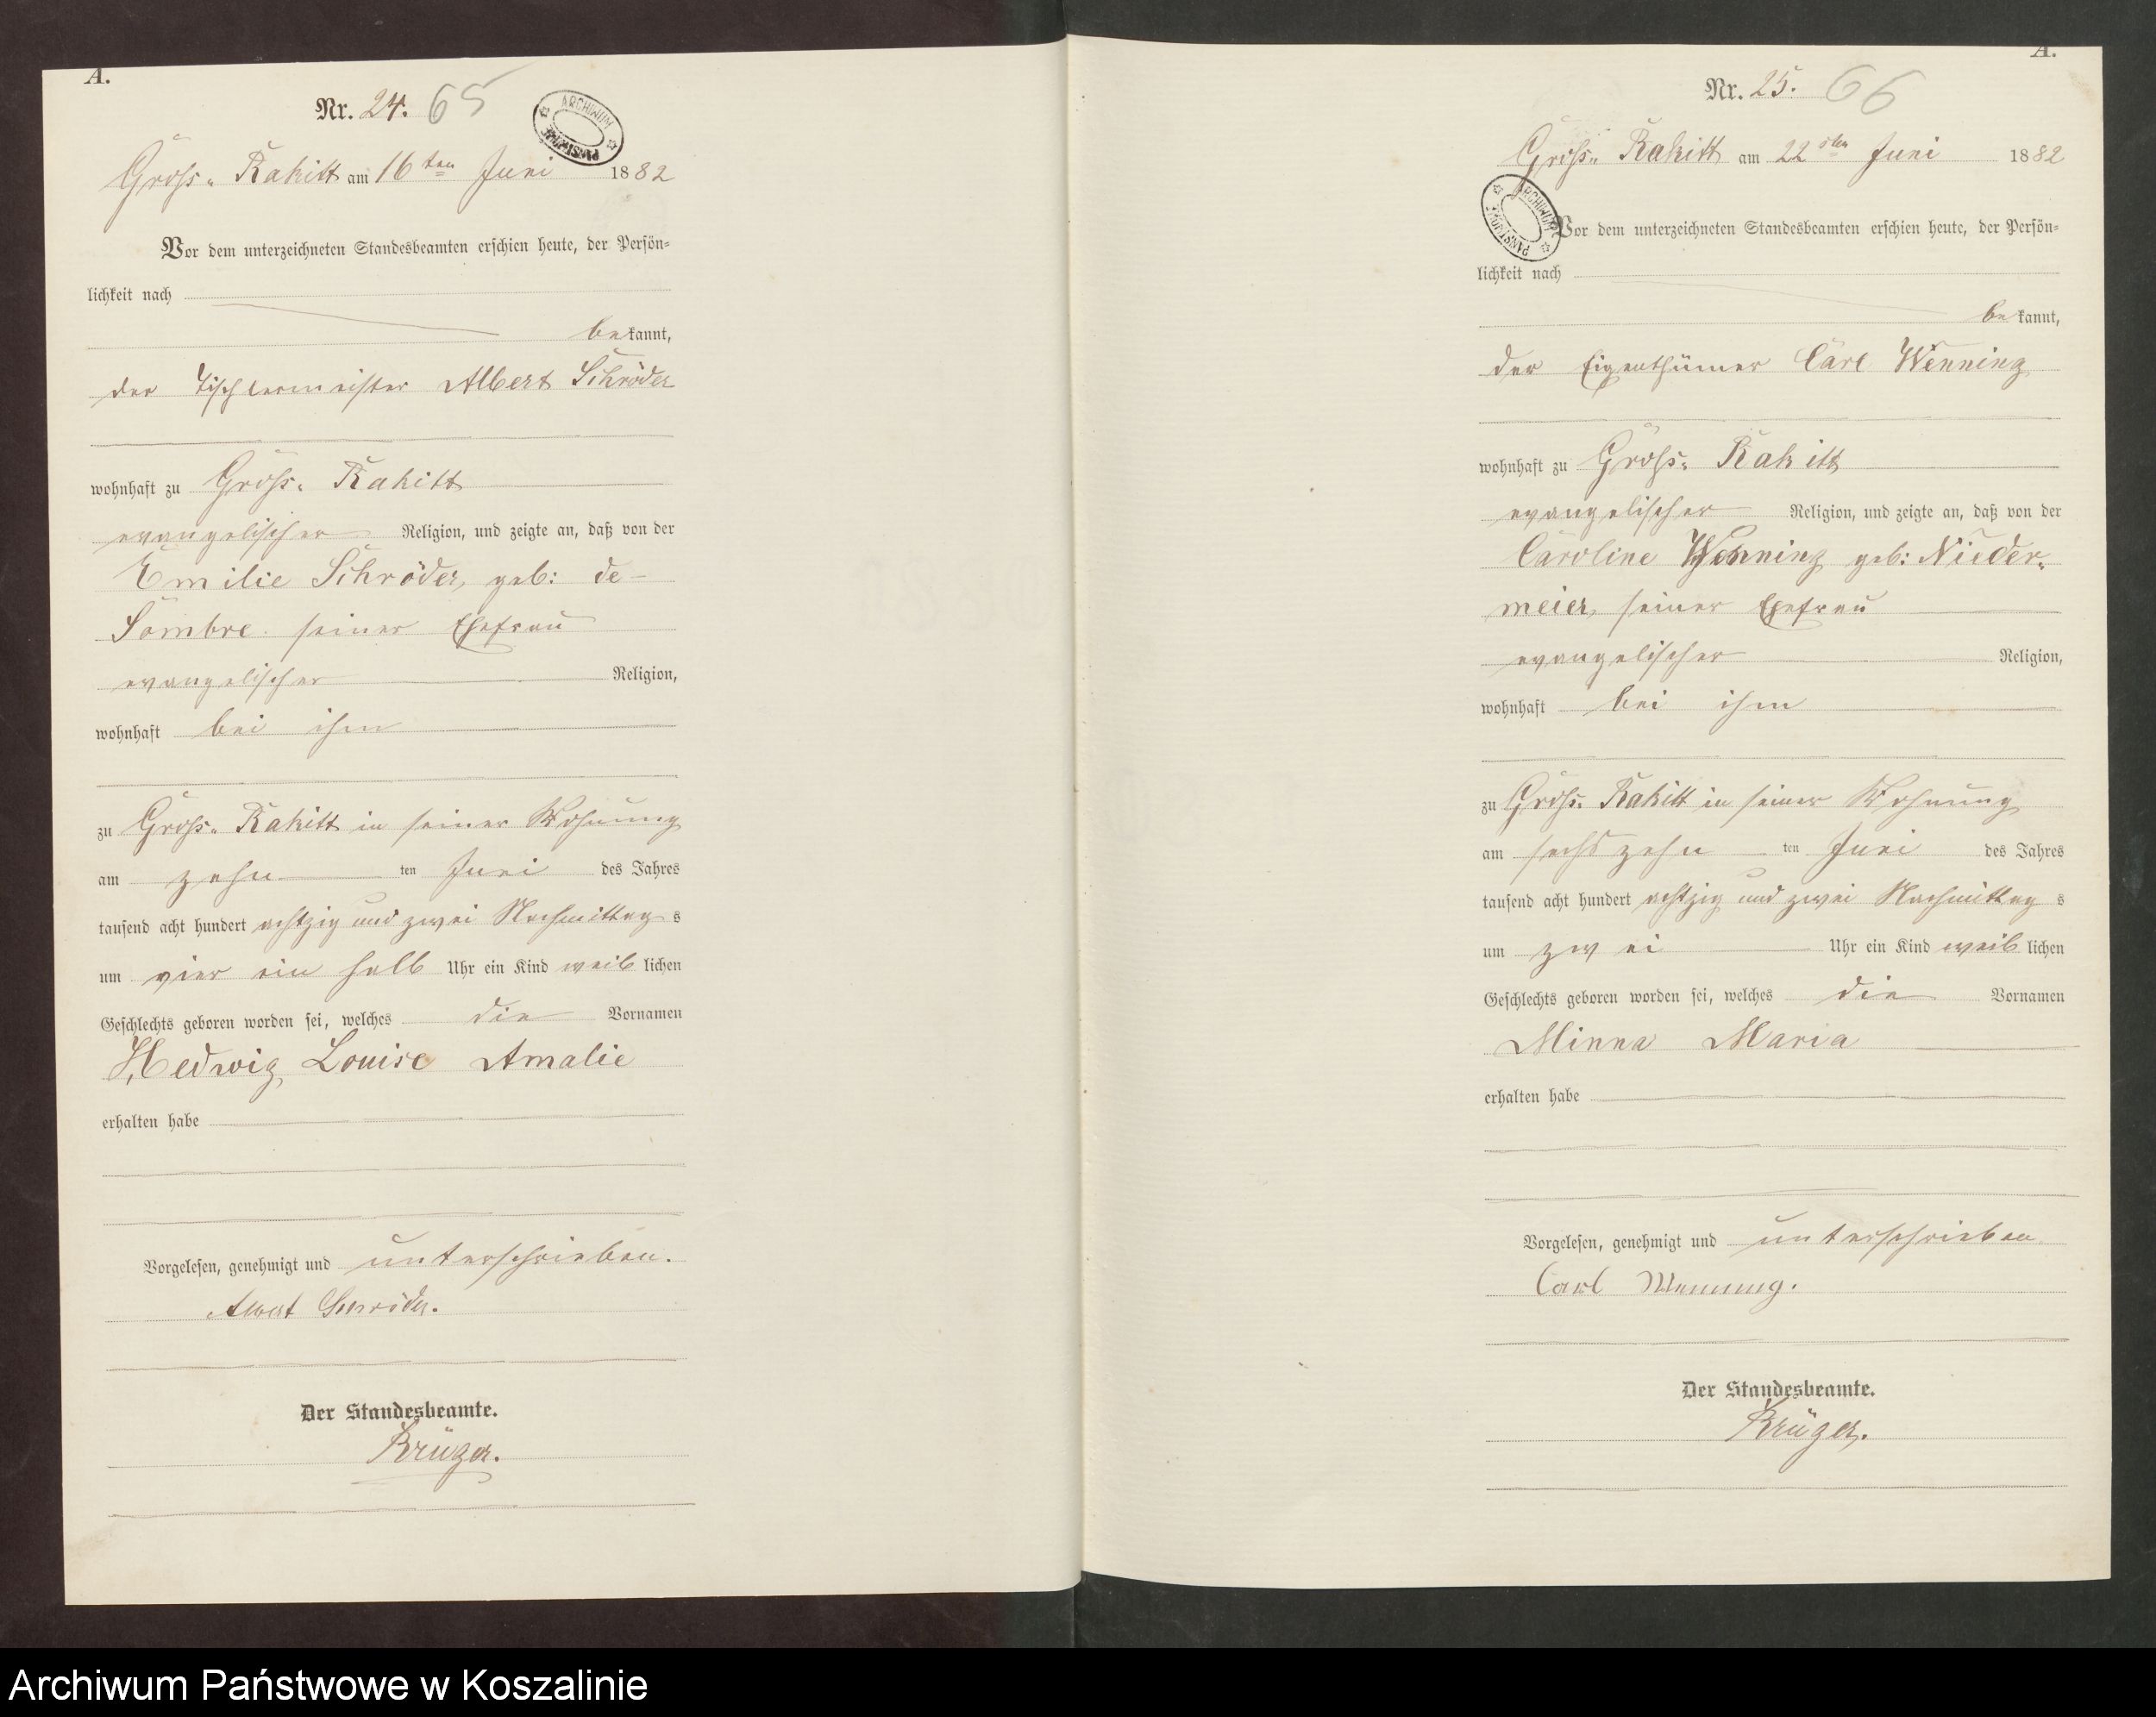 A.
Nr. 24. 65
ARCHIWUM PAŃSTWOWE
Gross-Rakitt am 16ten Juni 1882
Vor dem unterzeichneten Standesbeamten erschien heute, der Persön-
lichkeit nach
bekannt,
der Tischlermeister Albert Schröder
wohnhaft zu Gross-Rakitt
evangelischer Religion, und zeigte an, daß von der
Emilie Schröder, geb: de-
Sombre seiner Ehefrau
evangelischer Religion,
wohnhaft bei ihm
zu Gross-Rakitt in seiner Wohnung
am zehn ten Juni des Jahres
tausend acht hundert achtzig und zwei Nachmittags
um vier ein halb Uhr ein Kind weiblichen
Geschlechts geboren worden sei, welches die Vornamen
Hedwig Louise Amalie
erhalten habe
Vorgelesen, genehmigt und unterschrieben.
Albert Schröder.
Der Standesbeamte.
Krüger.
A.
Nr. 25. 66
Gross-Rakitt am 22sten Juni 1882
ARCHIWUM PAŃSTWOWE
Vor dem unterzeichneten Standesbeamten erschien heute, der Persön-
lichkeit nach
bekannt,
der Eigenthümer Carl Wenning
wohnhaft zu Gross-Rakitt
evangelischer Religion, und zeigte an, daß von der
Caroline Wenning geb: Nieder-
meier, seiner Ehefrau
evangelischer Religion,
wohnhaft bei ihm
zu Gross-Rakitt in seiner Wohnung
am sechszehn ten Juni des Jahres
tausend acht hundert achtzig und zwei Nachmittags
um zwei Uhr ein Kind weiblichen
Geschlechts geboren worden sei, welches die Vornamen
Minna Maria
erhalten habe
Vorgelesen, genehmigt und unterschrieben
Carl Wenning.
Der Standesbeamte.
Krüger.
Archiwum Państwowe w Koszalinie